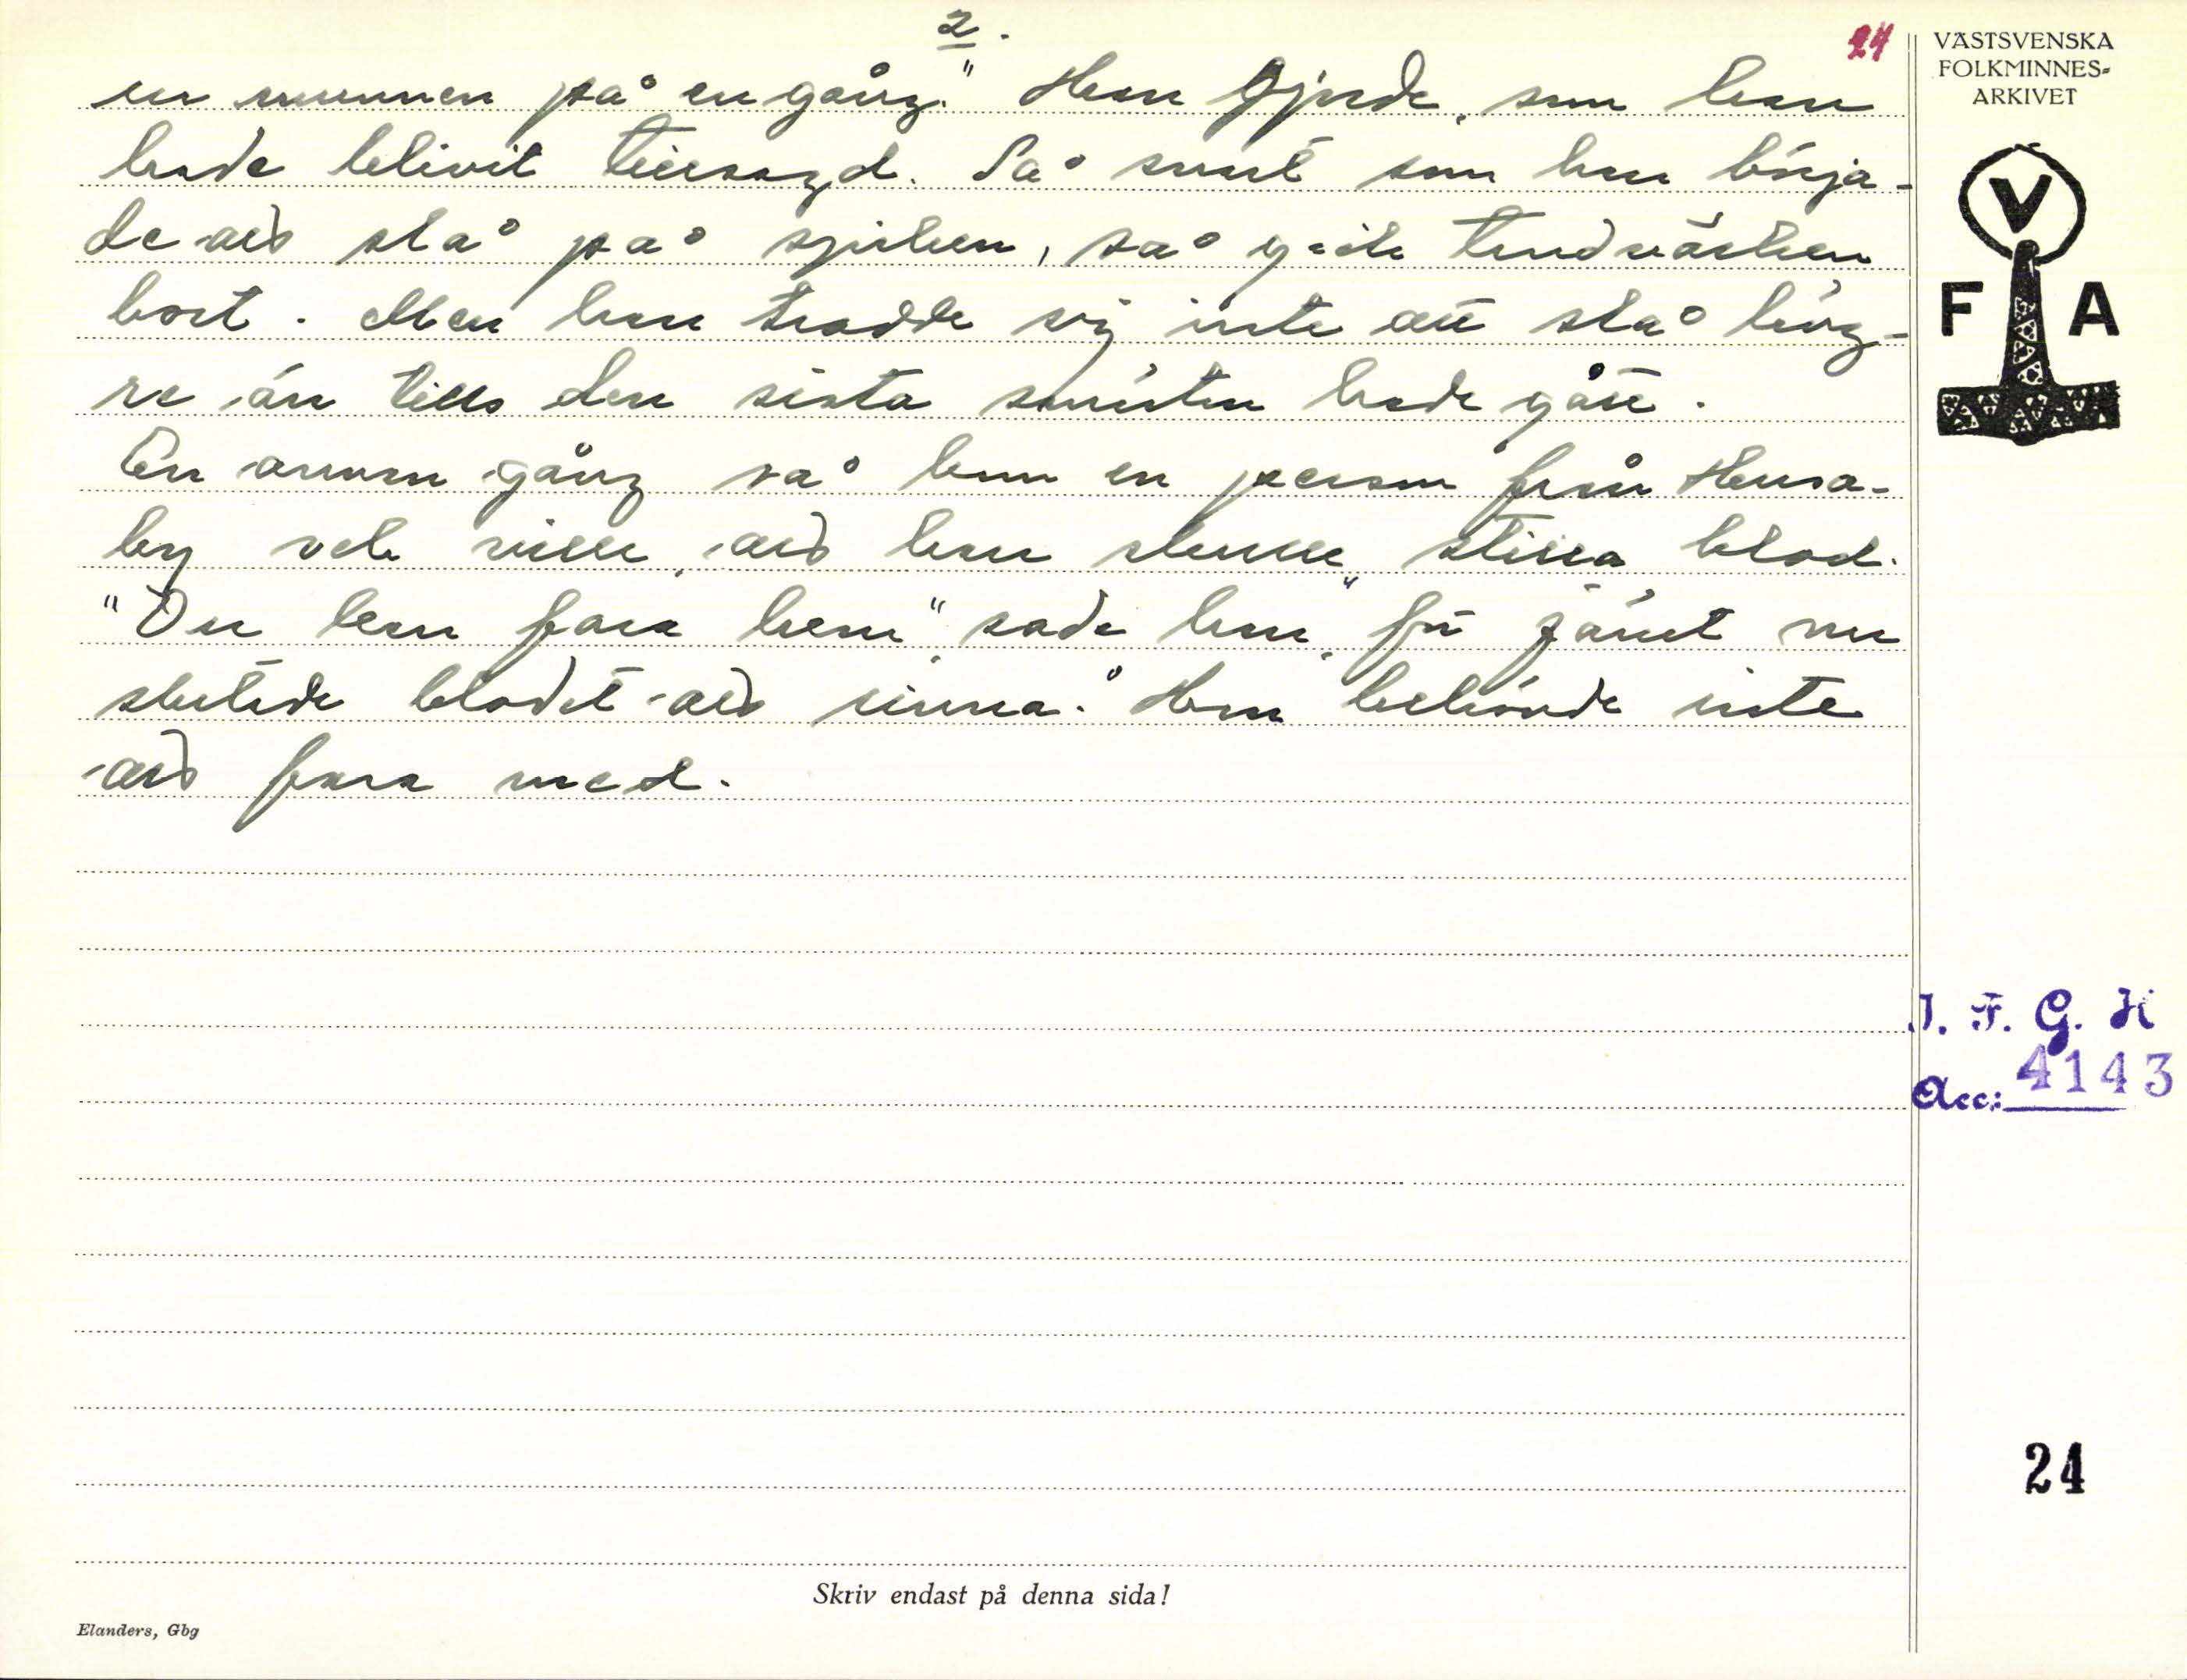 2.
24
ur munnen på en gång." Han gjorde, som han
hade blivit tillsagd. Så snart som han börja-
de att slå på spiken, så gick tandvärken
bort. Men han trodde sig inte att slå läng-
re än tills den sista smärtan hade gått.
En annan gång så kom en person från Husa-
by och ville, att han skulle stilla blod.
"Du kan fara hem" sade han, "för jämt nu
slutade blodet att rinna." Han behövde inte
att fara med.
VÄSTSVENSKA
FOLKMINNES-
ARKIVET
V
F A
I. F. G. H
Acc: 4143
24
Skriv endast på denna sida!
Elanders, Gbg